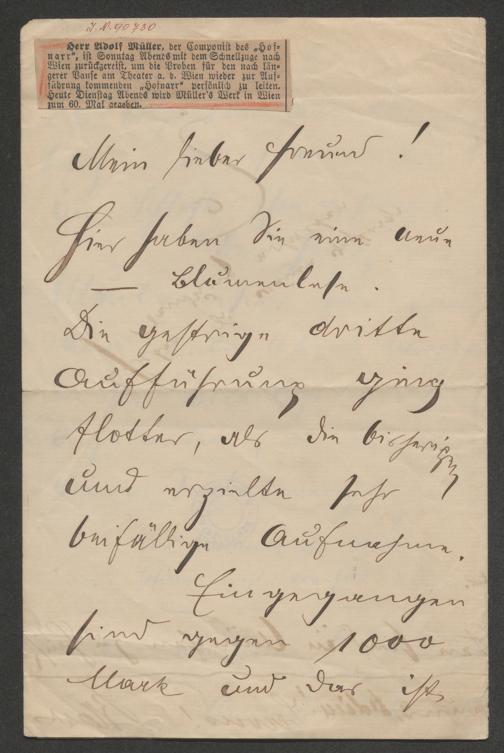 I.N. 90730
Herr Adolf Müller, der Componist des „Hof-
narr“, ist Sonntag Abends mit dem Schnellzuge nach
Wien zurückgereist, um die Proben für den nach län-
gerer Pause am Theater a. d. Wien wieder zur Auf-
führung kommenden „Hofnarr“ persönlich zu leiten.
Heute Dienstag Abends wird Müller's Werk in Wien
zum 60. Mal gegeben.
Mein lieber Freund!
Hier haben Sie eine neue
— Blumenlese.
Die gestrige dritte
Aufführung ging
flotter, als die bisherigen
und erzielte sehr
beifällige Aufnahme.
Eingegangen
sind gegen 1000
Mark und das ist